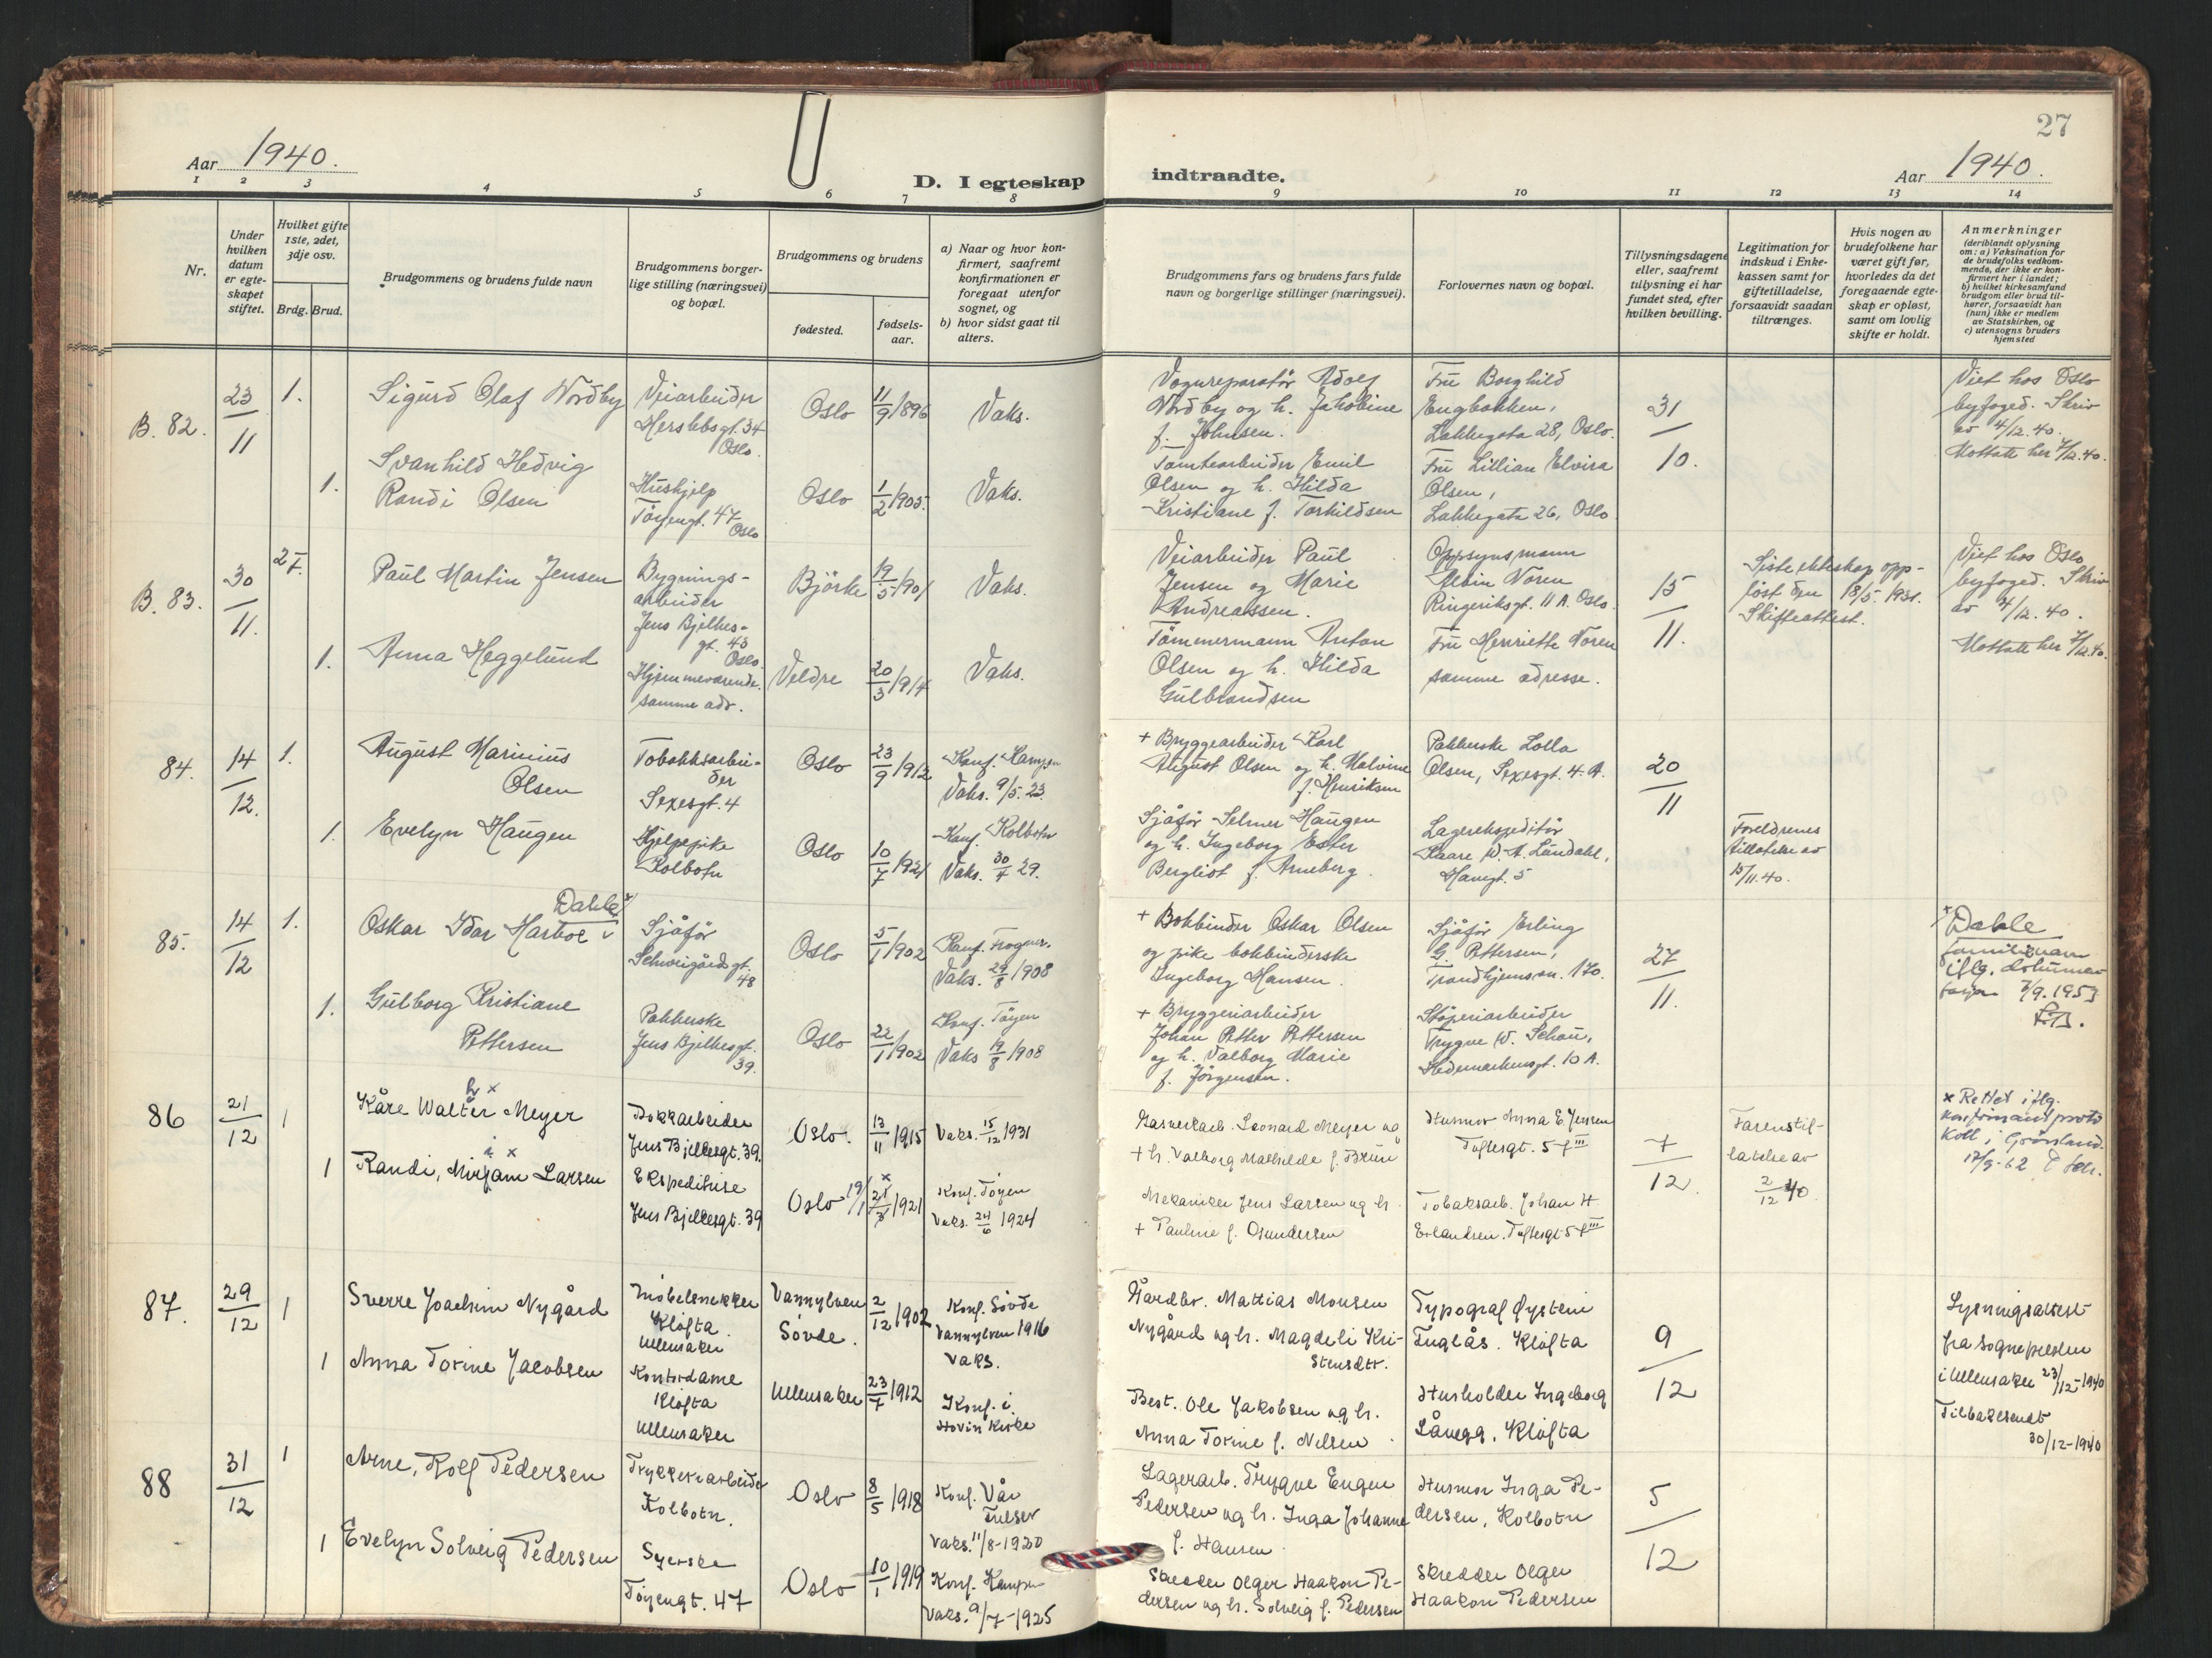 27
Aar 1940.
D. I egteskap
indtraadte.
Aar 1940.
1 2 3 4 5 6 7 8 9 10 11 12 13 14
Nr.
Under
hvilken
datum
er egte-
skapet
stiftet.
Hvilket gifte
1ste, 2det,
3dje osv.
Brdg. Brud.
Brudgommens og brudens fulde navn
Brudgommens borger-
lige stilling (næringsvei)
og bopæl.
Brudgommens og brudens
fødested.
fødsels-
aar.
a) Naar og hvor kon-
firmert, saafremt
konfirmationen er
foregaat utenfor
sognet, og
b) hvor sidst gaat til
alters.
Brudgommens fars og brudens fars fulde
navn og borgerlige stillinger (næringsvei).
Forlovernes navn og bopæl.
Tillysningsdagene
eller, saafremt
tillysning ei har
fundet sted, efter
hvilken bevilling.
Legitimation for
indskud i Enke-
kassen samt for
giftetilladelse,
forsaavidt saadan
tiltrænges.
Hvis nogen av
brudefolkene har
været gift før,
hvorledes da det
foregaaende egte-
skap er opløst,
samt om lovlig
skifte er holdt.
Anmerkninger
(deriblandt oplysning
om: a) Vaksination for
de brudefolks vedkom-
mende, der ikke er kon-
firmert her i landet;
b) hvilket kirkesamfund
brudgom eller brud til-
hører, forsaavidt han
(hun) ikke er medlem
av Statskirken, og
c) utensogns bruders
hjemsted
B. 82.
23/11
1.
Sigurd Olaf Nordby
Veiarbeider
Herslebsgt. 34
Oslo.
Oslo
11/9 1896
Vaks.
Vognreparatör Adolf
Nordby og h. Jakobine
f. Johnsen.
Fru Borghild
Engbakken,
Lakkegata 28, Oslo.
31/10.
Viet hos Oslo
byfoged. Skriv
av 4/12.40.
Mottatt her 7/12.40.
1.
Svanhild Hedvig
Randi Olsen
Hushjelp
Töyengt. 47
Oslo
Oslo
1/2 1905.
Vaks.
Tomtearbeider Emil
Olsen og h. Hilda
Kristiane f. Torkildsen
Fru Lillian Elvira
Olsen,
Lakkegata 26, Oslo
B. 83.
30/11.
2 f.
Paul Martin Jensen
Bygnings-
arbeider
Jens Bjelkes-
gt. 43
Oslo.
Björke
19/5 1901
Vaks.
Veiarbeider Paul
Jensen og Marie
Andreassen.
Oppsynsmann
Albin Noren
Ringeriksgt. 11 A. Oslo.
15/11.
Siste ekteskap opp-
löst den 18/5. 1931.
Skifteattest.
Viet hos Oslo
byfoged. Skriv
av 4/12. 40.
Mottatt her 7/12.40.
1.
Anna Heggelund
Hjemmeværende
samme adr.
Veldre
20/3 1914
Vaks.
Tömmermann Anton
Olsen og h. Hilda
Gulbrandsen
Fru Henriette Noren
samme adresse.
84.
14/12.
1.
August Marinius
Olsen
Tobakksarbei-
der
Sexesgt. 4
Oslo
23/9 1912
Konf. Kampen
Vaks. 9/5. 23.
+ Bryggearbeider Karl
August Olsen og h. Malvine
f. Henriksen
Pakkerske Lolla
Olsen, Sexesgt. 4. A.
20/11
1.
Evelyn Haugen
Hjelpepike
Kolbotn
Oslo
10/7 1921
Konf. Kolbotn
Vaks. 30/4 29.
Sjåför Selmer Haugen
og h. Ingeborg Ester
Bergliot f. Arneberg.
Lagerekspeditör
Kaare W. A. Lundahl,
Havegt. 5
Foreldrenes
tillatelse av
15/11.40.
85.
14/12
1.
Dahle x
Oskar Idar Harboe
Sjåför
Schweigårdsgt.
48
Oslo
5/1 1902
Konf. Frogner.
Vaks. 29/8 1908
+ Bokbinder Oskar Olsen
og pike bokbinderske
Ingeborg Hansen.
Sjåför Erling
G. Pettersen,
Trondhjemsvn. 170.
27/11.
x Dahle
familienavn
iflg. dokumen-
tasjon 7/9. 1953
1.
Gulborg Kristiane
Pettersen
Pakkerske
Jens Bjelkesgt.
39.
Oslo
22/1 1902
Konf. Töyen
Vaks 19/8 1908
+ Bryggeriarbeider
Johan Petter Pettersen
og h. Valborg Marie
f. Jörgensen.
Stöperiarbeider
Trygve W. Schau,
Hedemarkensgt. 10 A.
86
21/12
1
h x
Kåre Walter Meyer
Dokkarbeider
Jens Bjelkesgt. 39.
Oslo.
13/11 1915
Vaks. 15/12 1931
Gasverkarb. Leonard Meyer og
+ h. Valborg Mathilde f. Bruu
Husmor Anna E. Jensen
Toftesgt. 5 f III
7/12.
Farens til-
latelse av
2/12 40.
x Rettet iflg.
konfirmantproto
koll i Grönland.
17/9-62
1
i x
Randi, Mirjam Larsen
Ekspeditrise
Jens Bjelkesgt. 39
Oslo
19/1 x
21/3 1921
Konf. Töyen
Vaks. 24/6 1924
Mekaniker Jens Larsen og h.
+ Pauline f. Osmundsen
Tobaksarb. Johan H.
Erlandsen. Toftesgt 5 f III
87.
29/12
1
Sverre Joachim Nygård
Möbelsnekker
Klöfta.
Ullensaker
Vannylven
Sövde.
2/12 1902
Konf. Sövde
Vannylven 1916
Vaks.
Gårdbr. Mattias Monsen
Nygård og h. Magdeli Kri-
stensdtr.
Typograf Øystein
Fuglås. Klöfta
9/12
Lysningsattest
fra sognepresten
i Ullensaker 23/12-1940
Tilbakesendt
30/12-1940
1
Anna Torine Jacobsen
Kontordame
Klöfta
Ullensaker
Ullensaker
23/7 1912
Konf. i
Hovin Kirke
Best. Ole Jakobsen og h.
Anna Torine f. Nilsen.
Husholder Ingeborg
Låvegg. Klöfta
88
31/12
1
Arne, Rolf Pedersen
Trykkeriarbeider
Kolbotn.
Oslo
8/5 1918
Konf. Vår
Frelser
Vaks. 11/8-1920
Lagerarb. Trygve Eugen
Pedersen og h. Inga Johanne
f. Hansen
Husmor Inga Pe-
dersen, Kolbotn
5/12
1
Evelyn Solveig Pedersen
Syerske
Töyengt. 47
Oslo
10/1 1919
Konf. Kampen
Vaks. 9/7-1925
Skredder Olger Haakon Pe-
dersen og h. Solveig f. Pedersen
Skredder Olger
Haakon Pedersen